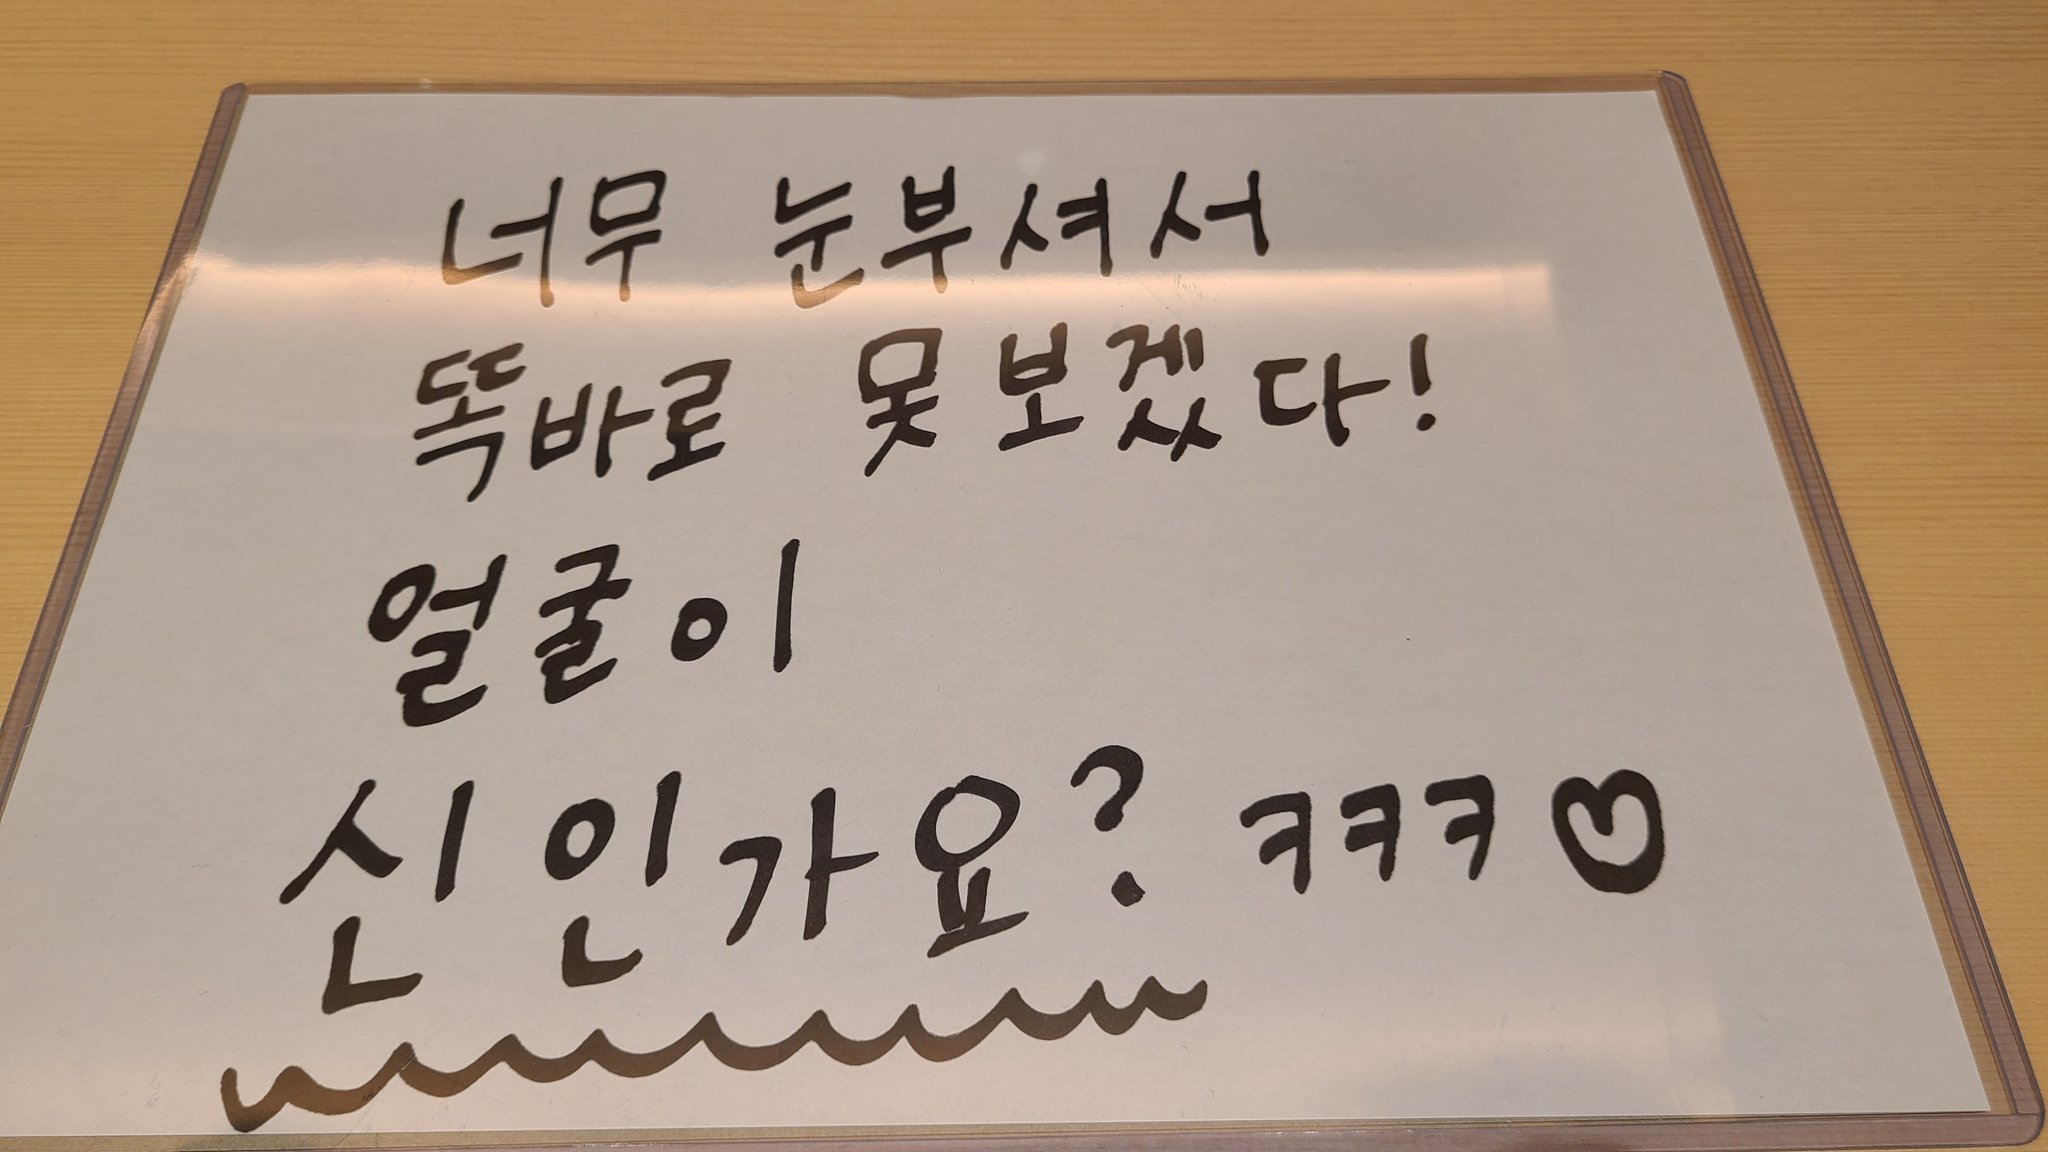 너무 눈부셔서
똑바로 못보겠다!
얼굴이
신인가요? ㅋㅋㅋ♡